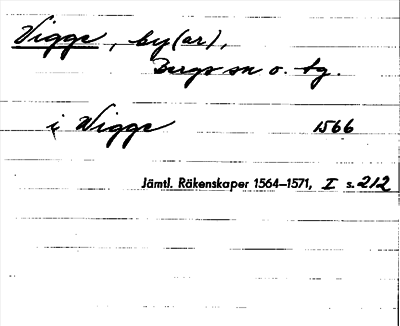 Vigge, by(ar),
Bergs sn o. tg.
i Wigge 1566
Jämtl. Räkenskaper 1564–1571, I s. 212